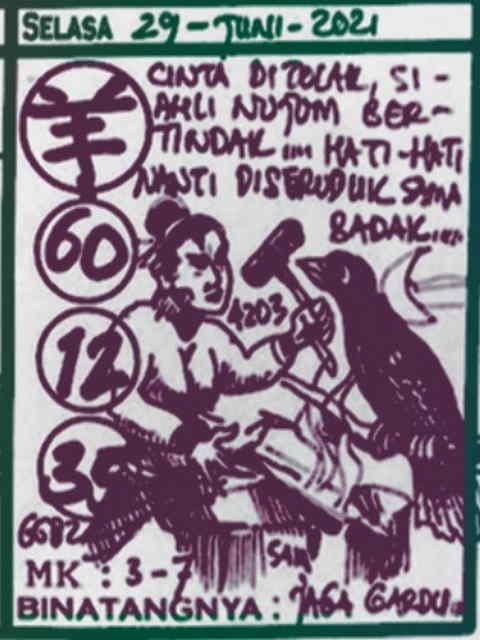 SELASA 29-JUNI-2021
CINTA DITOLAK, SI-
AHLI NUJUM BER-
TINDAK .... HATI-HATI
NANTI DISERUDUK SAMA
BADAK....
羊
60
4203
12
35
6682
SAM
MK : 3-7
BINATANGNYA : JAGA GARDU